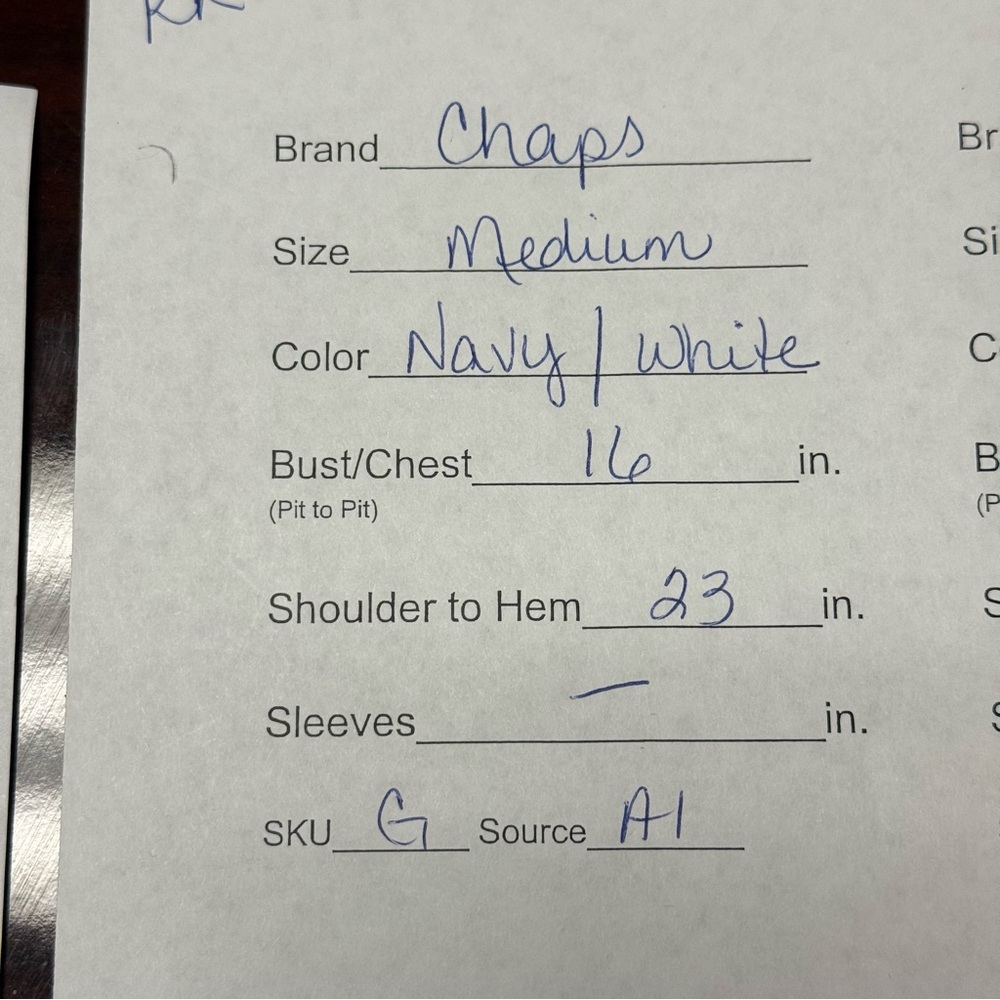 Brand Chaps
Size Medium
Color Navy / White
Bust/Chest 16 in.
(Pit to Pit)
Shoulder to Hem 23 in.
Sleeves — in.
SKU G Source A1
Br
Si
C
B
(P
S
S